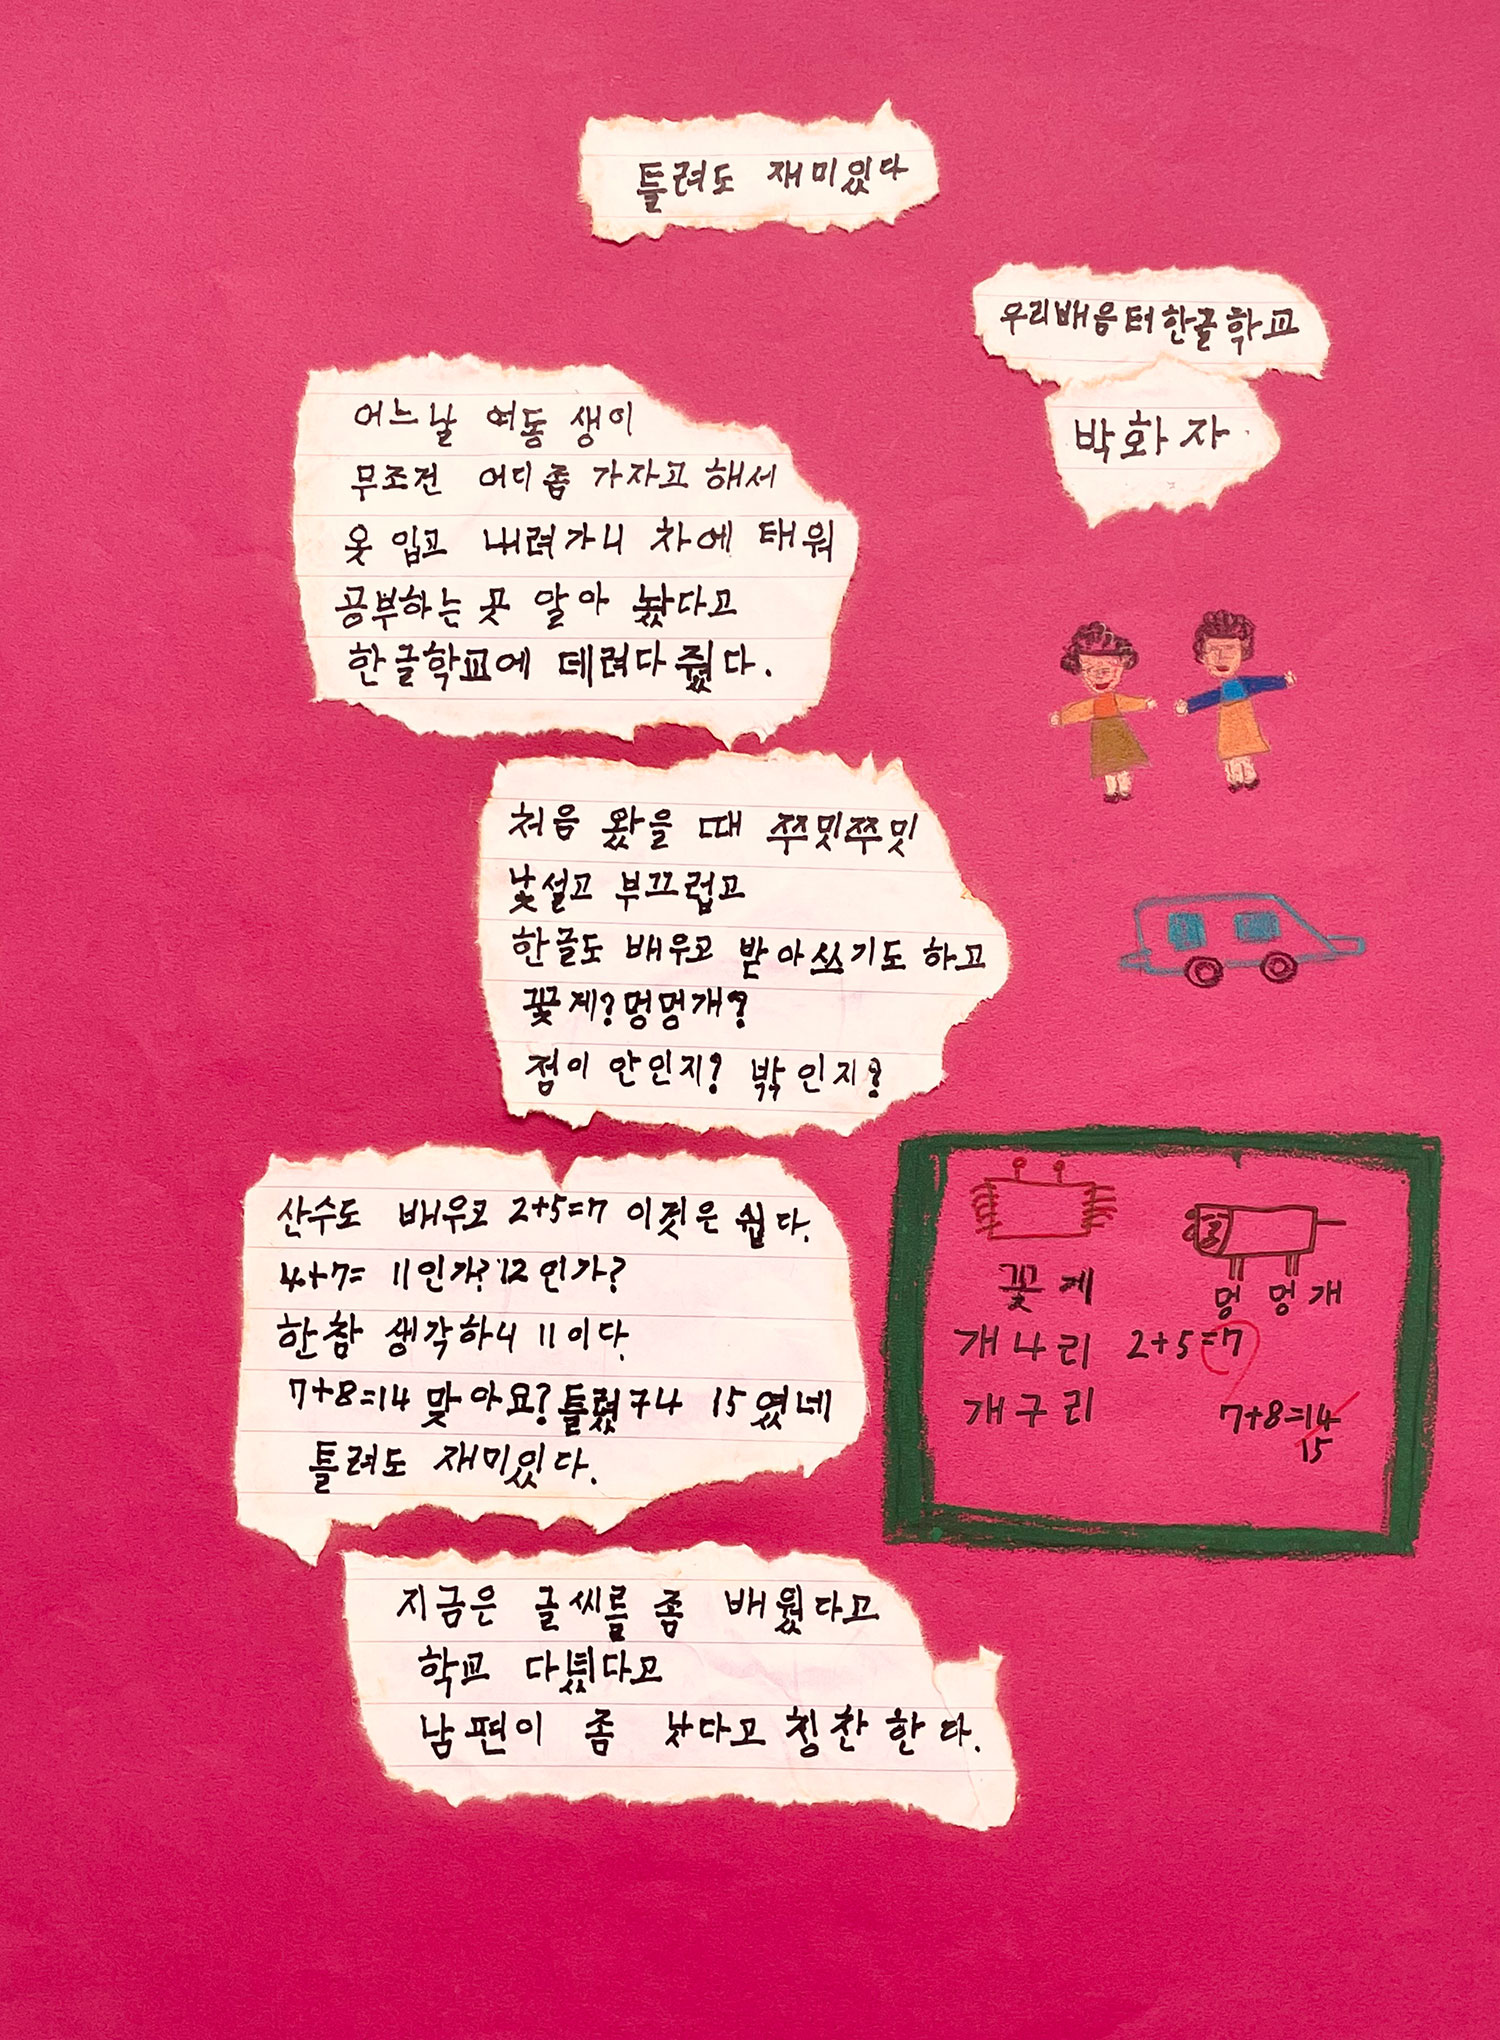 틀려도 재미있다
우리배움터한글학교
박화자
어느날 여동생이
무조건 어디좀 가자고 해서
옷 입고 내려가니 차에 태워
공부하는곳 알아 놨다고
한글학교에 데려다줬다.
처음 왔을 때 쭈밋쭈밋
낯설고 부끄럽고
한글도 배우고 받아쓰기도 하고
꽃게? 멍멍개?
점이 안인지? 밖인지?
산수도 배우고 2+5=7 이것은 쉽다.
4+7= 11인가? 12인가?
한참 생각하니 11이다.
7+8=14 맞아요? 틀렸구나 15였네
틀려도 재미있다.
꽃게 멍멍개
개나리 2+5=7
개구리 7+8=14
15
지금은 글씨를 좀 배웠다고
학교 다녔다고
남편이 좀 낫다고 칭찬한다.